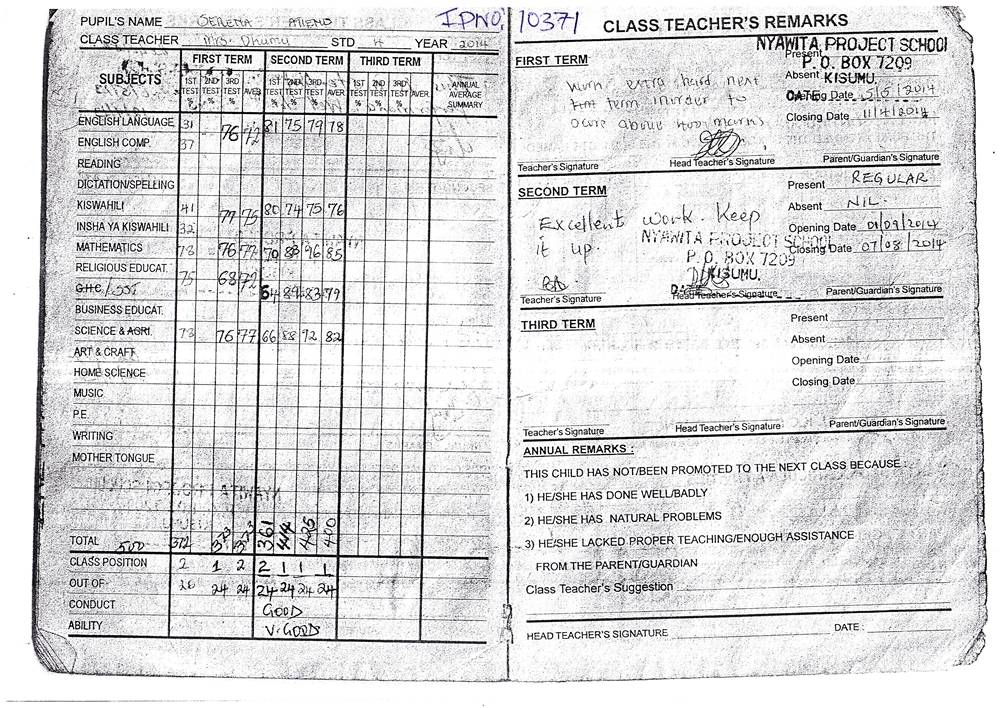 PUPIL'S NAME SERENA ATIENO
CLASS TEACHER Mrs. Dhumu STD 4 YEAR 2014
IPNO, 10371
FIRST TERM SECOND TERM THIRD TERM
SUBJECTS 1ST TEST % 2ND TEST % 3RD TEST % AVER 1ST TEST % 2ND TEST % 3RD TEST % AVER 1ST TEST % 2ND TEST % 3RD TEST % AVER. ANNUAL AVERAGE SUMMARY
ENGLISH LANGUAGE 31 76 72 81 75 79 78
ENGLISH COMP. 37
READING
DICTATION/SPELLING
KISWAHILI 41 77 75 80 74 75 76
INSHA YA KISWAHILI 32
MATHEMATICS 78 76 77 70 88 96 85
RELIGIOUS EDUCAT. 75 68 72
G.H.C/SST 64 89 83 79
BUSINESS EDUCAT.
SCIENCE & AGRI. 78 76 77 66 88 92 82
ART & CRAFT
HOME SCIENCE
MUSIC
P.E.
WRITING
MOTHER TONGUE
TOTAL 500 372 373 373 361 414 425 400
CLASS POSITION 2 1 2 2 1 1 1
OUT OF 26 24 24 24 24 24 24
CONDUCT GOOD
ABILITY V. GOOD
CLASS TEACHER'S REMARKS
NYAWITA PROJECT SCHOOL
P. O. BOX 7209
KISUMU.
DATE
FIRST TERM
Work extra hard next
term inorder to
above 400 marks
Present
Absent
Opening Date 5/5/2014
Closing Date 11/4/2014
Teacher's Signature Head Teacher's Signature Parent/Guardian's Signature
SECOND TERM
Excellent work. Keep
it up.
NYAWITA PROJECT SCHOOL
P. O. BOX 7209
KISUMU.
DATE
Present REGULAR
Absent NIL.
Opening Date 01/09/2014
Closing Date 07/08/2014
Teacher's Signature Head Teacher's Signature Parent/Guardian's Signature
THIRD TERM
Present
Absent
Opening Date
Closing Date
Teacher's Signature Head Teacher's Signature Parent/Guardian's Signature
ANNUAL REMARKS :
THIS CHILD HAS NOT/BEEN PROMOTED TO THE NEXT CLASS BECAUSE :
1) HE/SHE HAS DONE WELL/BADLY
2) HE/SHE HAS NATURAL PROBLEMS
3) HE/SHE LACKED PROPER TEACHING/ENOUGH ASSISTANCE
FROM THE PARENT/GUARDIAN
Class Teacher's Suggestion
HEAD TEACHER'S SIGNATURE DATE :